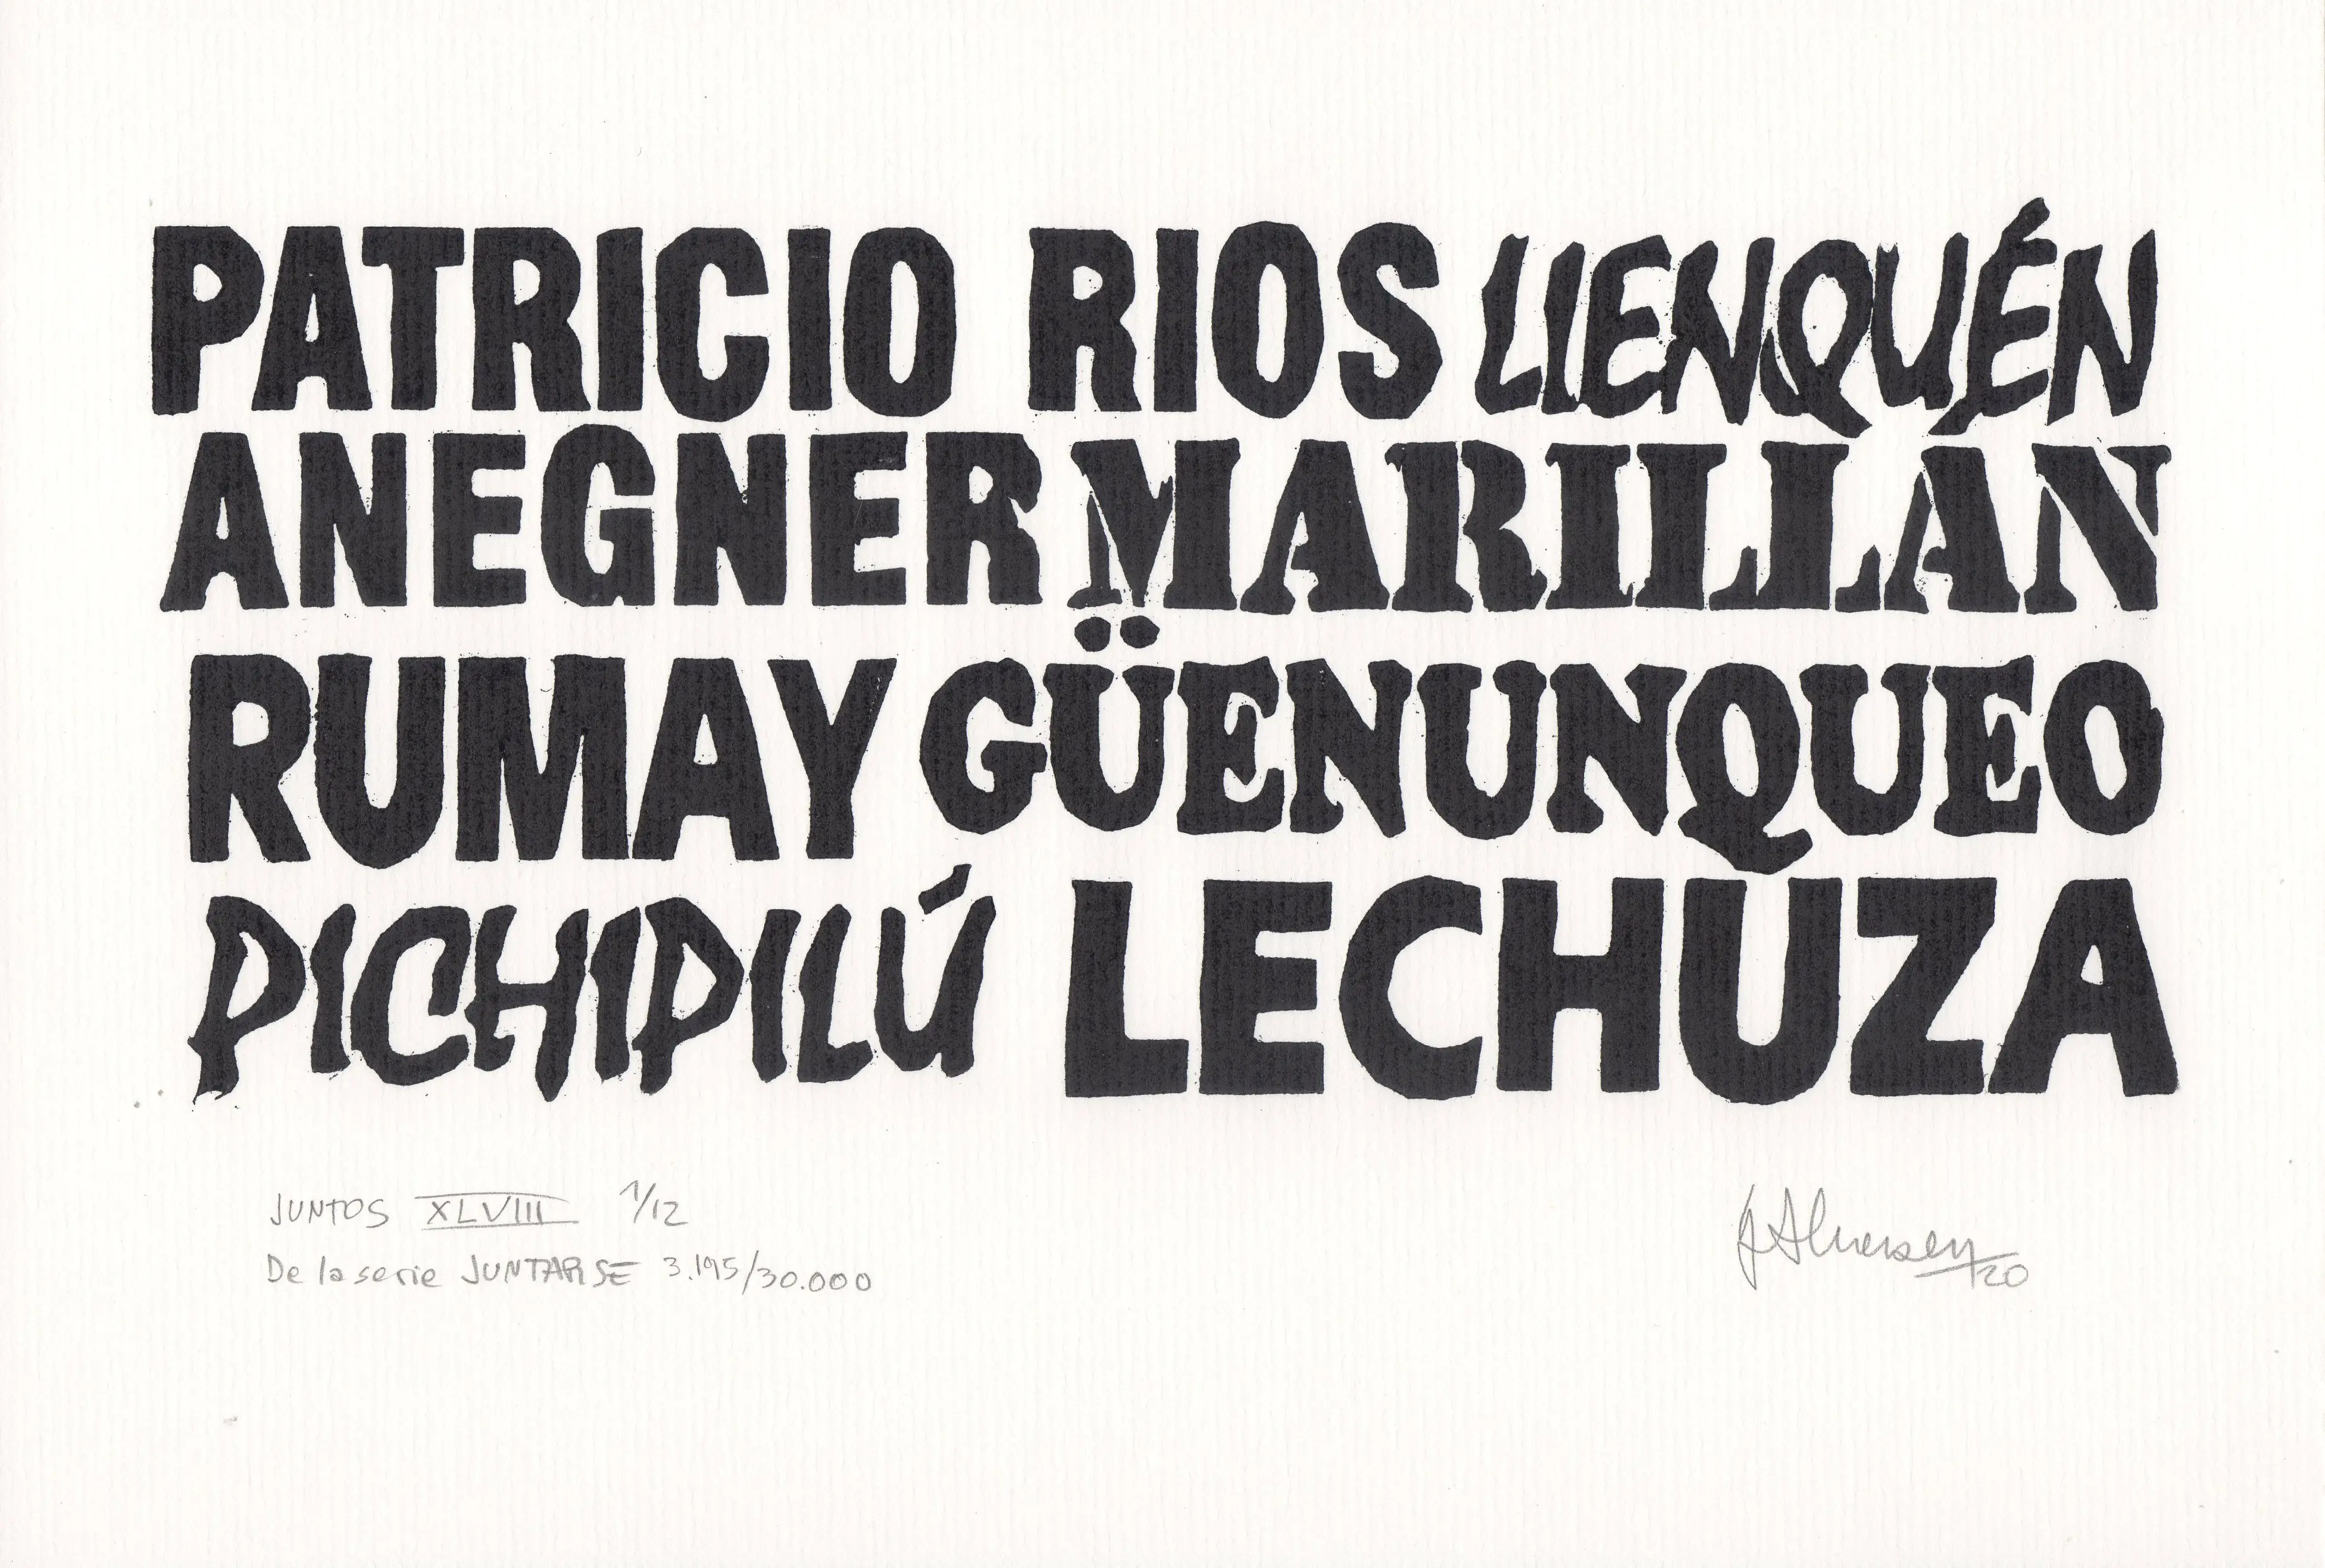 PATRICIO RIOS LIENQUÉN
ANEGNER MARILLÁN
RUMAY GÜENUNQUEO
PICHIPILÚ LECHUZA
JUNTOS XLVIII 1/12
De la serie JUNTARSE 3.195/30.000
20